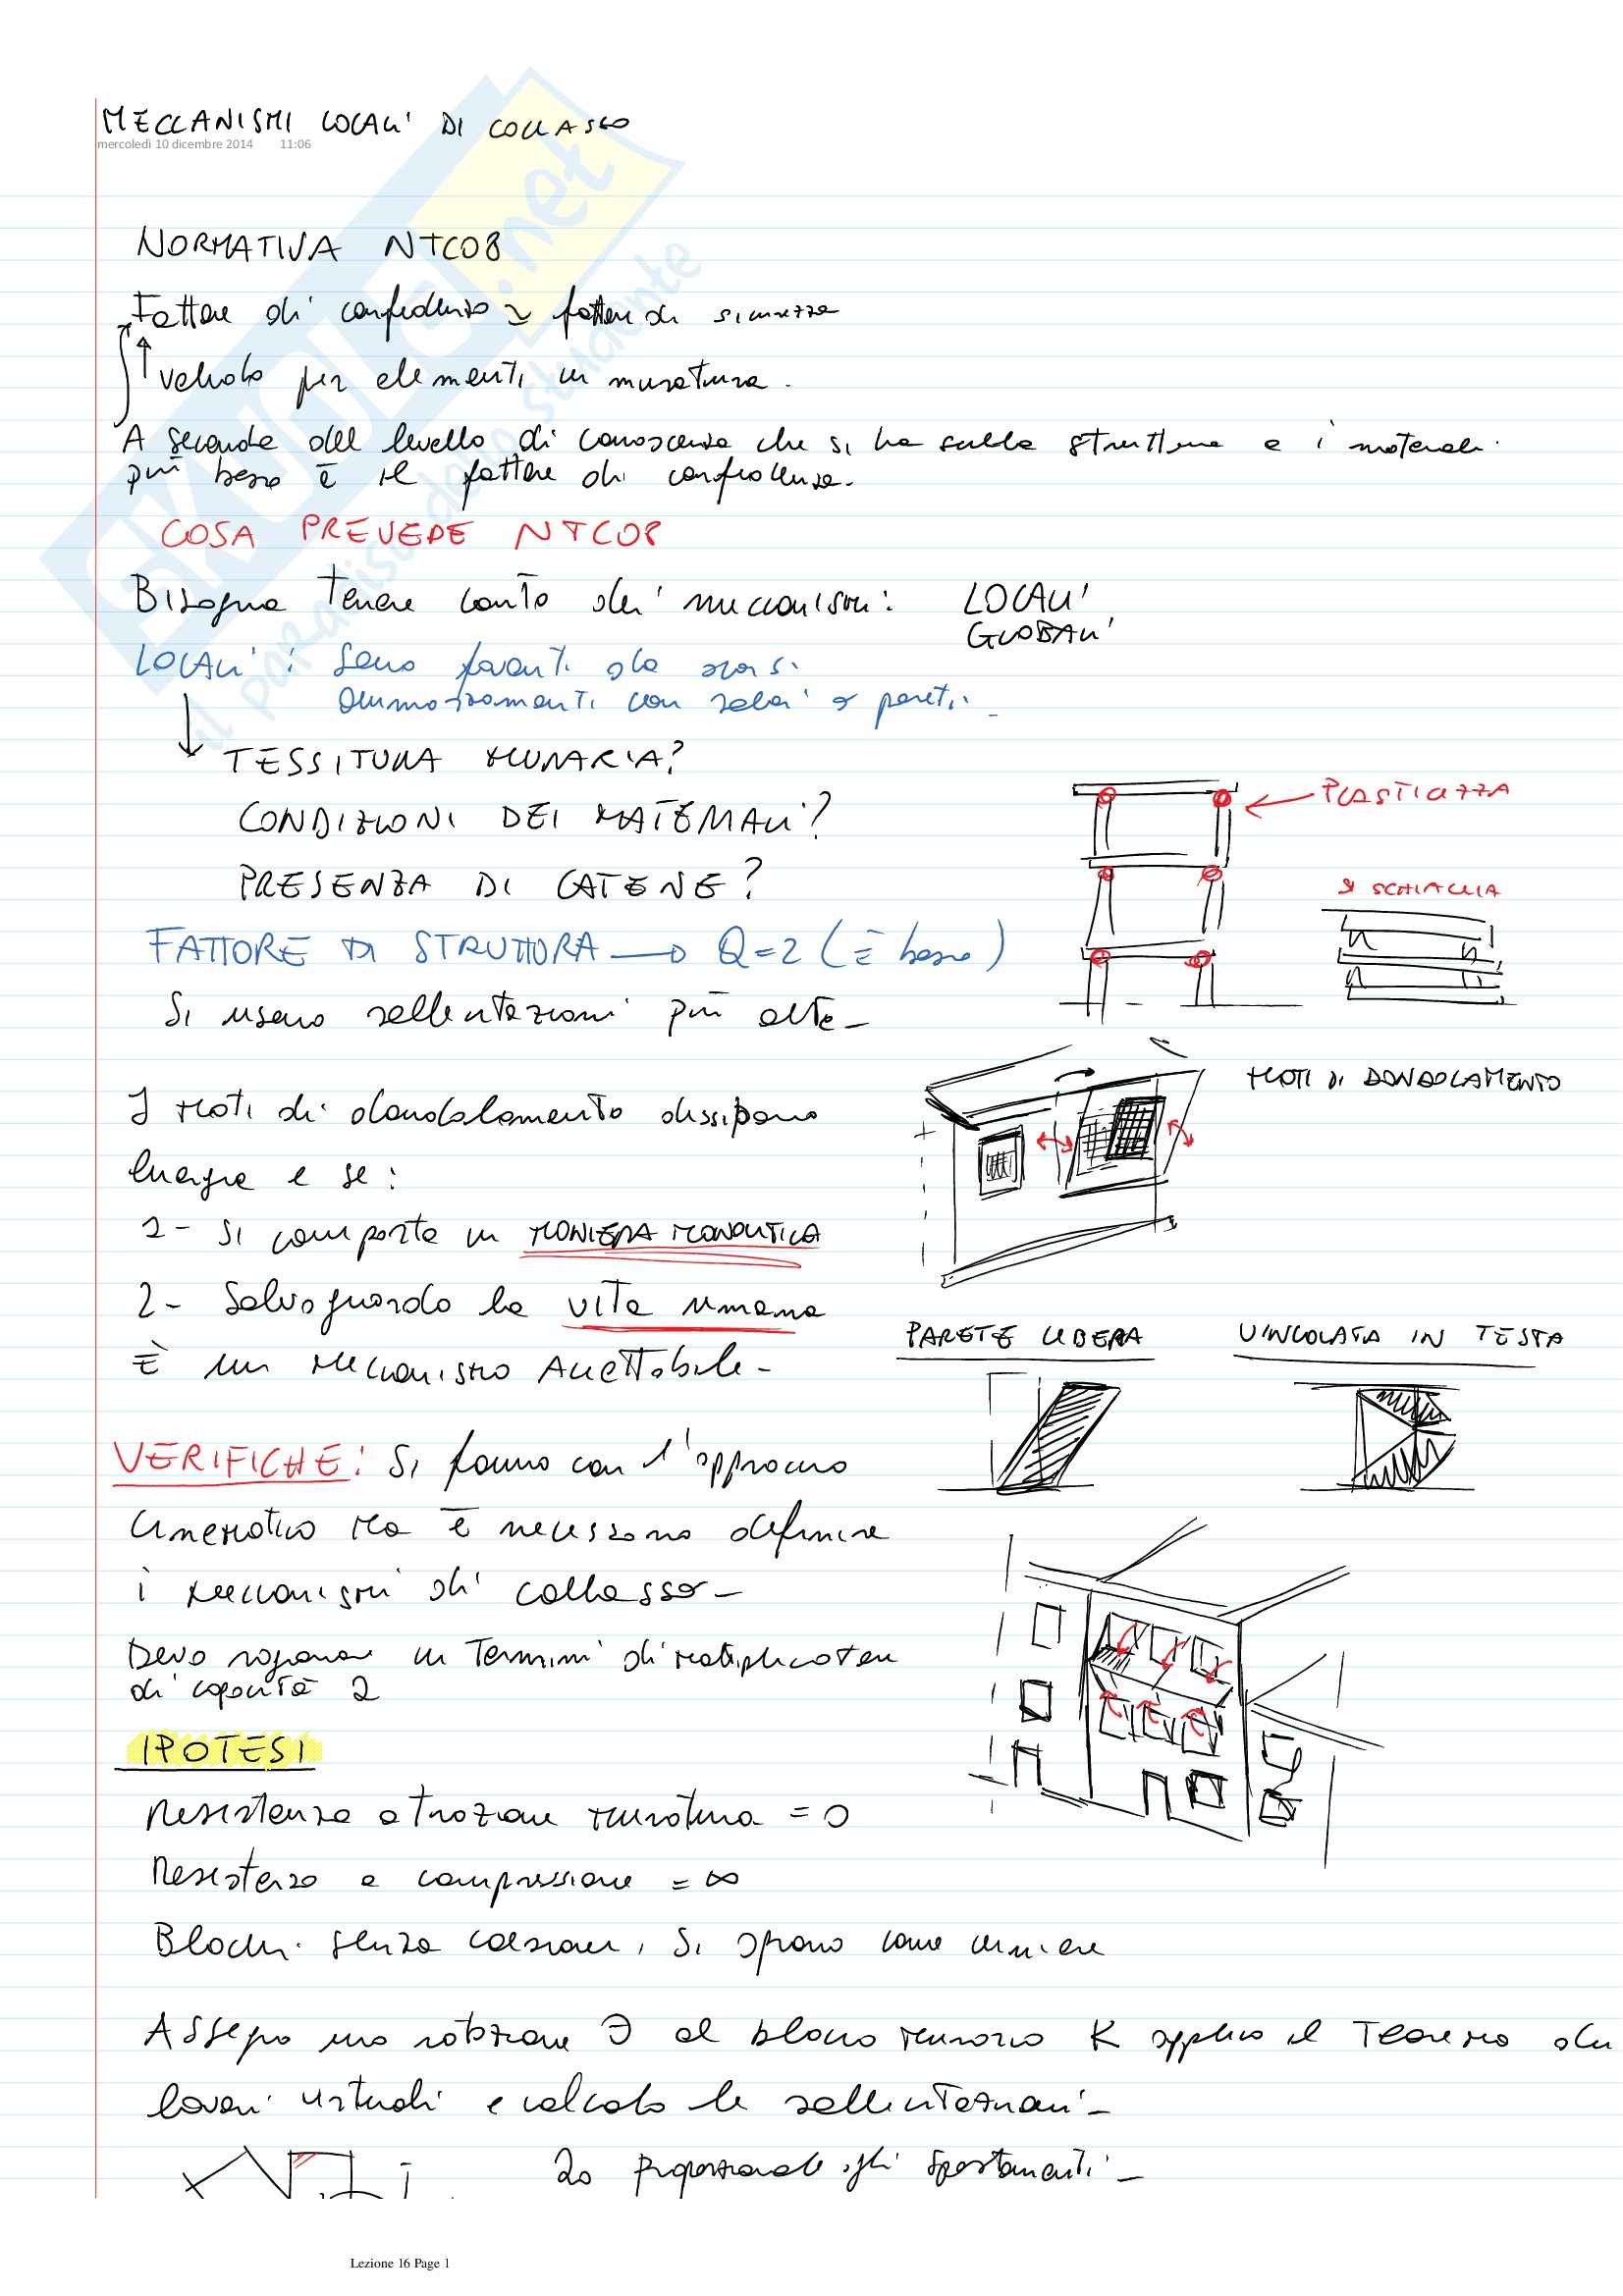 MECCANISMI LOCALI DI COLLASSO
mercoledì 10 dicembre 2014 11:06
SKUOLA.net
il paradiso dello studente
NORMATIVA NTC08
Fattore di confidenza ≃ fattore di sicurezza
valido per elementi in muratura.
A seconda del livello di conoscenza che si ha sulla struttura e i materiali
più basso è il fattore di confidenza.
COSA PREVEDE NTC08
Bisogna tenere conto dei meccanismi: LOCALI
GLOBALI
LOCALI: Sono favoriti da scarsi
ammorsamenti con solai e pareti.
TESSITURA MURARIA?
CONDIZIONI DEI MATERIALI?
PRESENZA DI CATENE?
PLASTICIZZA
SI SCHIACCIA
FATTORE DI STRUTTURA → Q=2 (È basso)
Si usano sollecitazioni più alte-
MOTI DI DONDOLAMENTO
I moti di dondolamento dissipano
energia e se:
1- Si comporta in MANIERA MONOLITICA
2- Salvaguardo la vita umana
È un Meccanismo Accettabile-
PARETE LIBERA
VINCOLATA IN TESTA
VERIFICHE: Si fanno con l'approccio
Cinematico ma è necessario definire
i meccanismi di collasso-
Devo ragionare in Termini di moltiplicatore
di capacità 2
IPOTESI
Resistenza a trazione muratura = 0
Resistenza a compressione = ∞
Blocchi senza coesione, si aprono come cerniere
Assegno una rotazione ϑ al blocco murario K applico il Teorema dei
lavori virtuali e calcolo le sollecitazioni-
2o proporzionale agli spostamenti-
Lezione 16 Page 1